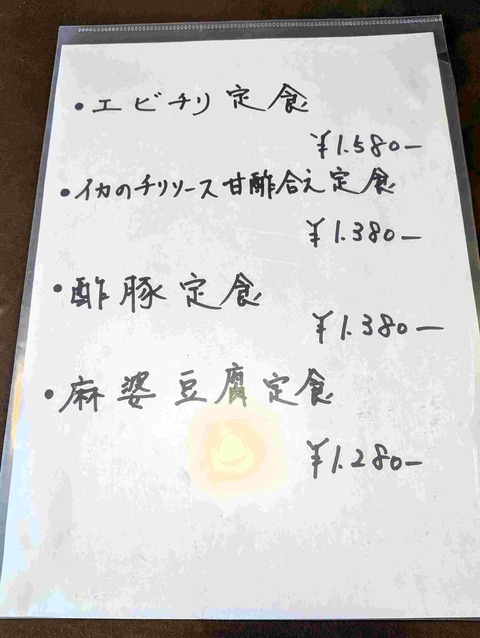 ・エビチリ定食
¥1.580ー
・イカのチリソース甘酢合え定食
¥1.380ー
・酢豚定食
¥1.380ー
・麻婆豆腐定食
¥1.280ー